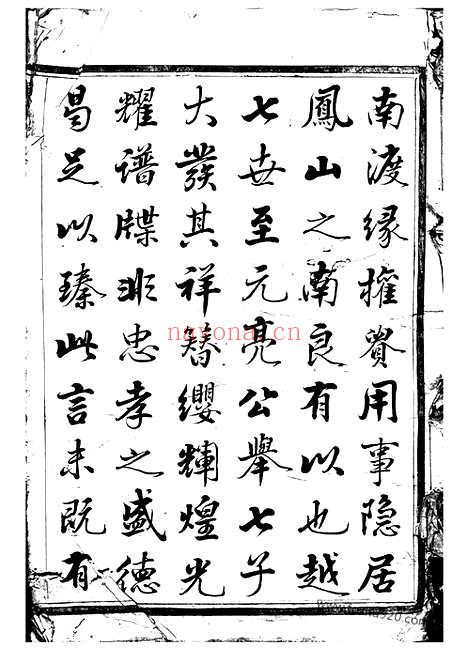 南渡緣權貴用事隱居
鳳山之南良有以也越
七世至元亮公舉七子
大發其祥簪纓輝煌光
耀譜牒非忠孝之盛德
曷足以臻此言未既有
nayona.cn